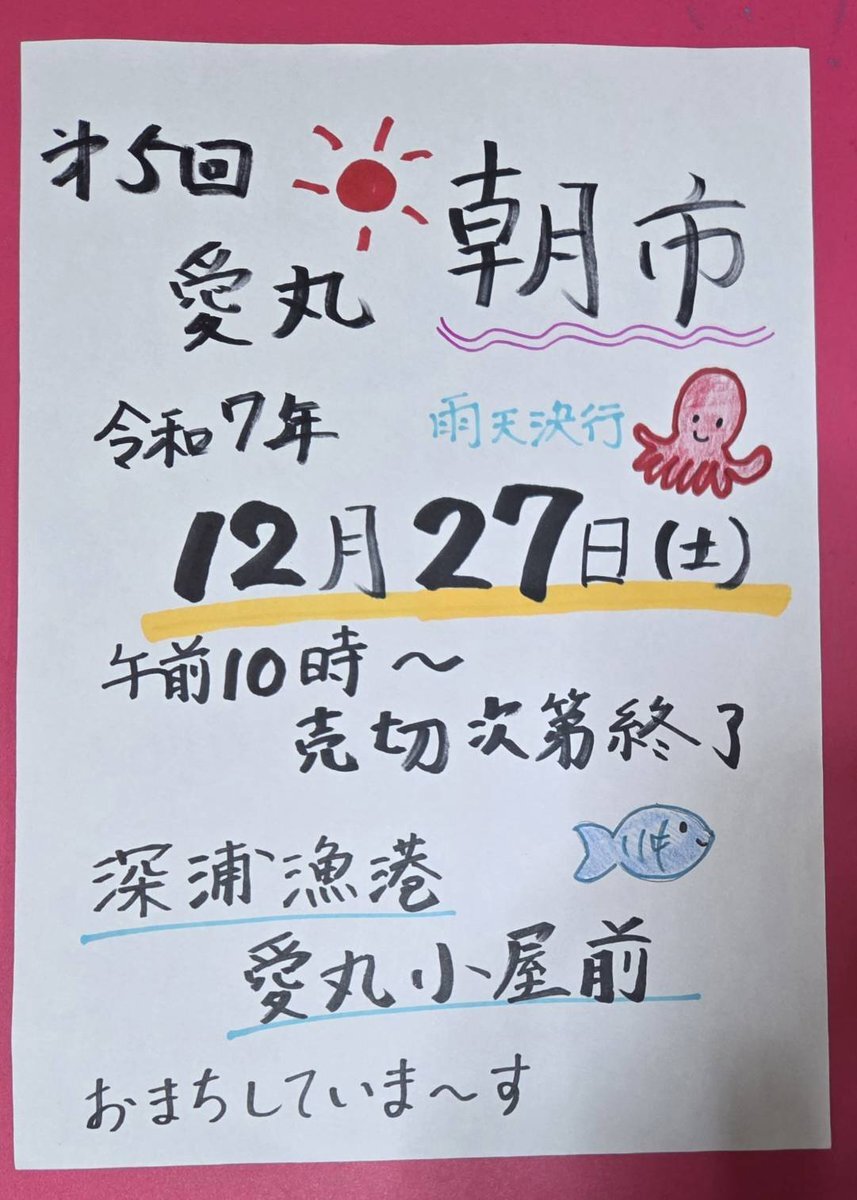 才5回
愛丸
朝市
令和7年
雨天決行
12月27日(土)
午前10時～
売切次第終了
深浦漁港
愛丸小屋前
おまちしていま～す